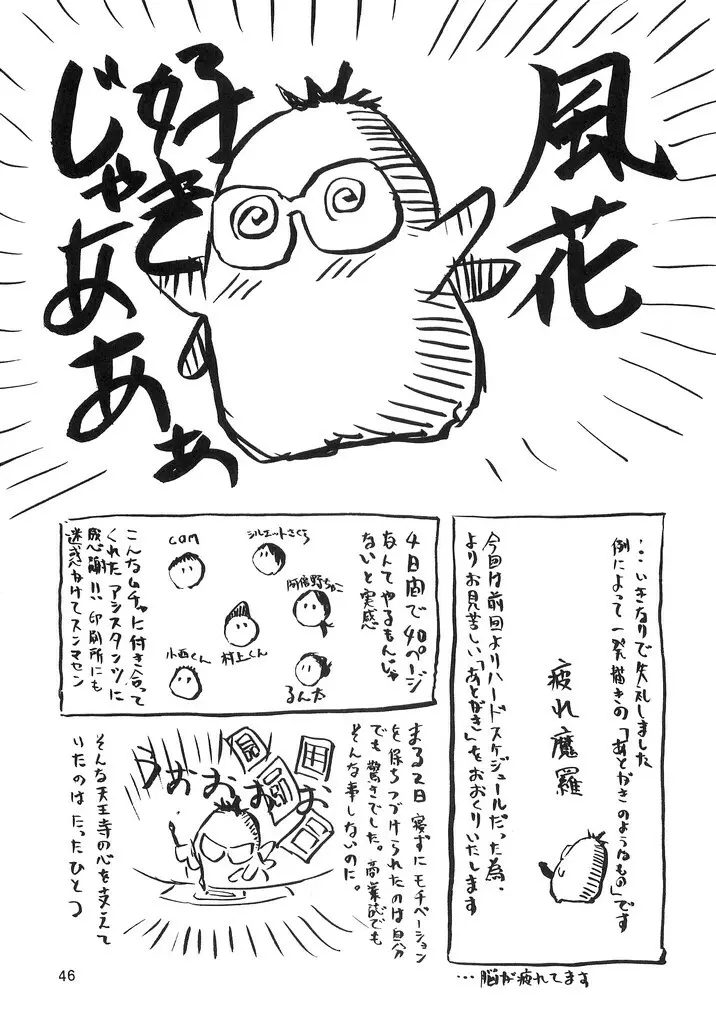 風花
好き
じゃ
あああ
…いきなりで失礼しました
例によって一発描きの「あとがきのようなもの」です
疲れ魔羅
今回は前回よりハードスケジュールだった為、
よりお見苦しい「あとがき」をおおくりいたします
…脳が疲れてます
4日間で40ページ
なんてやるもんじゃ
ないと実感
シルエットさくら
cam
阿倍野ちゃこ
村上くん
小西くん
るん太
こんなムチャに付き合って
くれたアシスタンツに
感謝!!印刷所にも
迷惑かけてスンマセン
まる2日寝ずにモチベーション
を保ちつづけられたのは自分
でも驚きでした。商業誌でも
そんな事しないのに。
うおおおお
そんな天王寺の心を支えて
いたのはたったひとつ
46